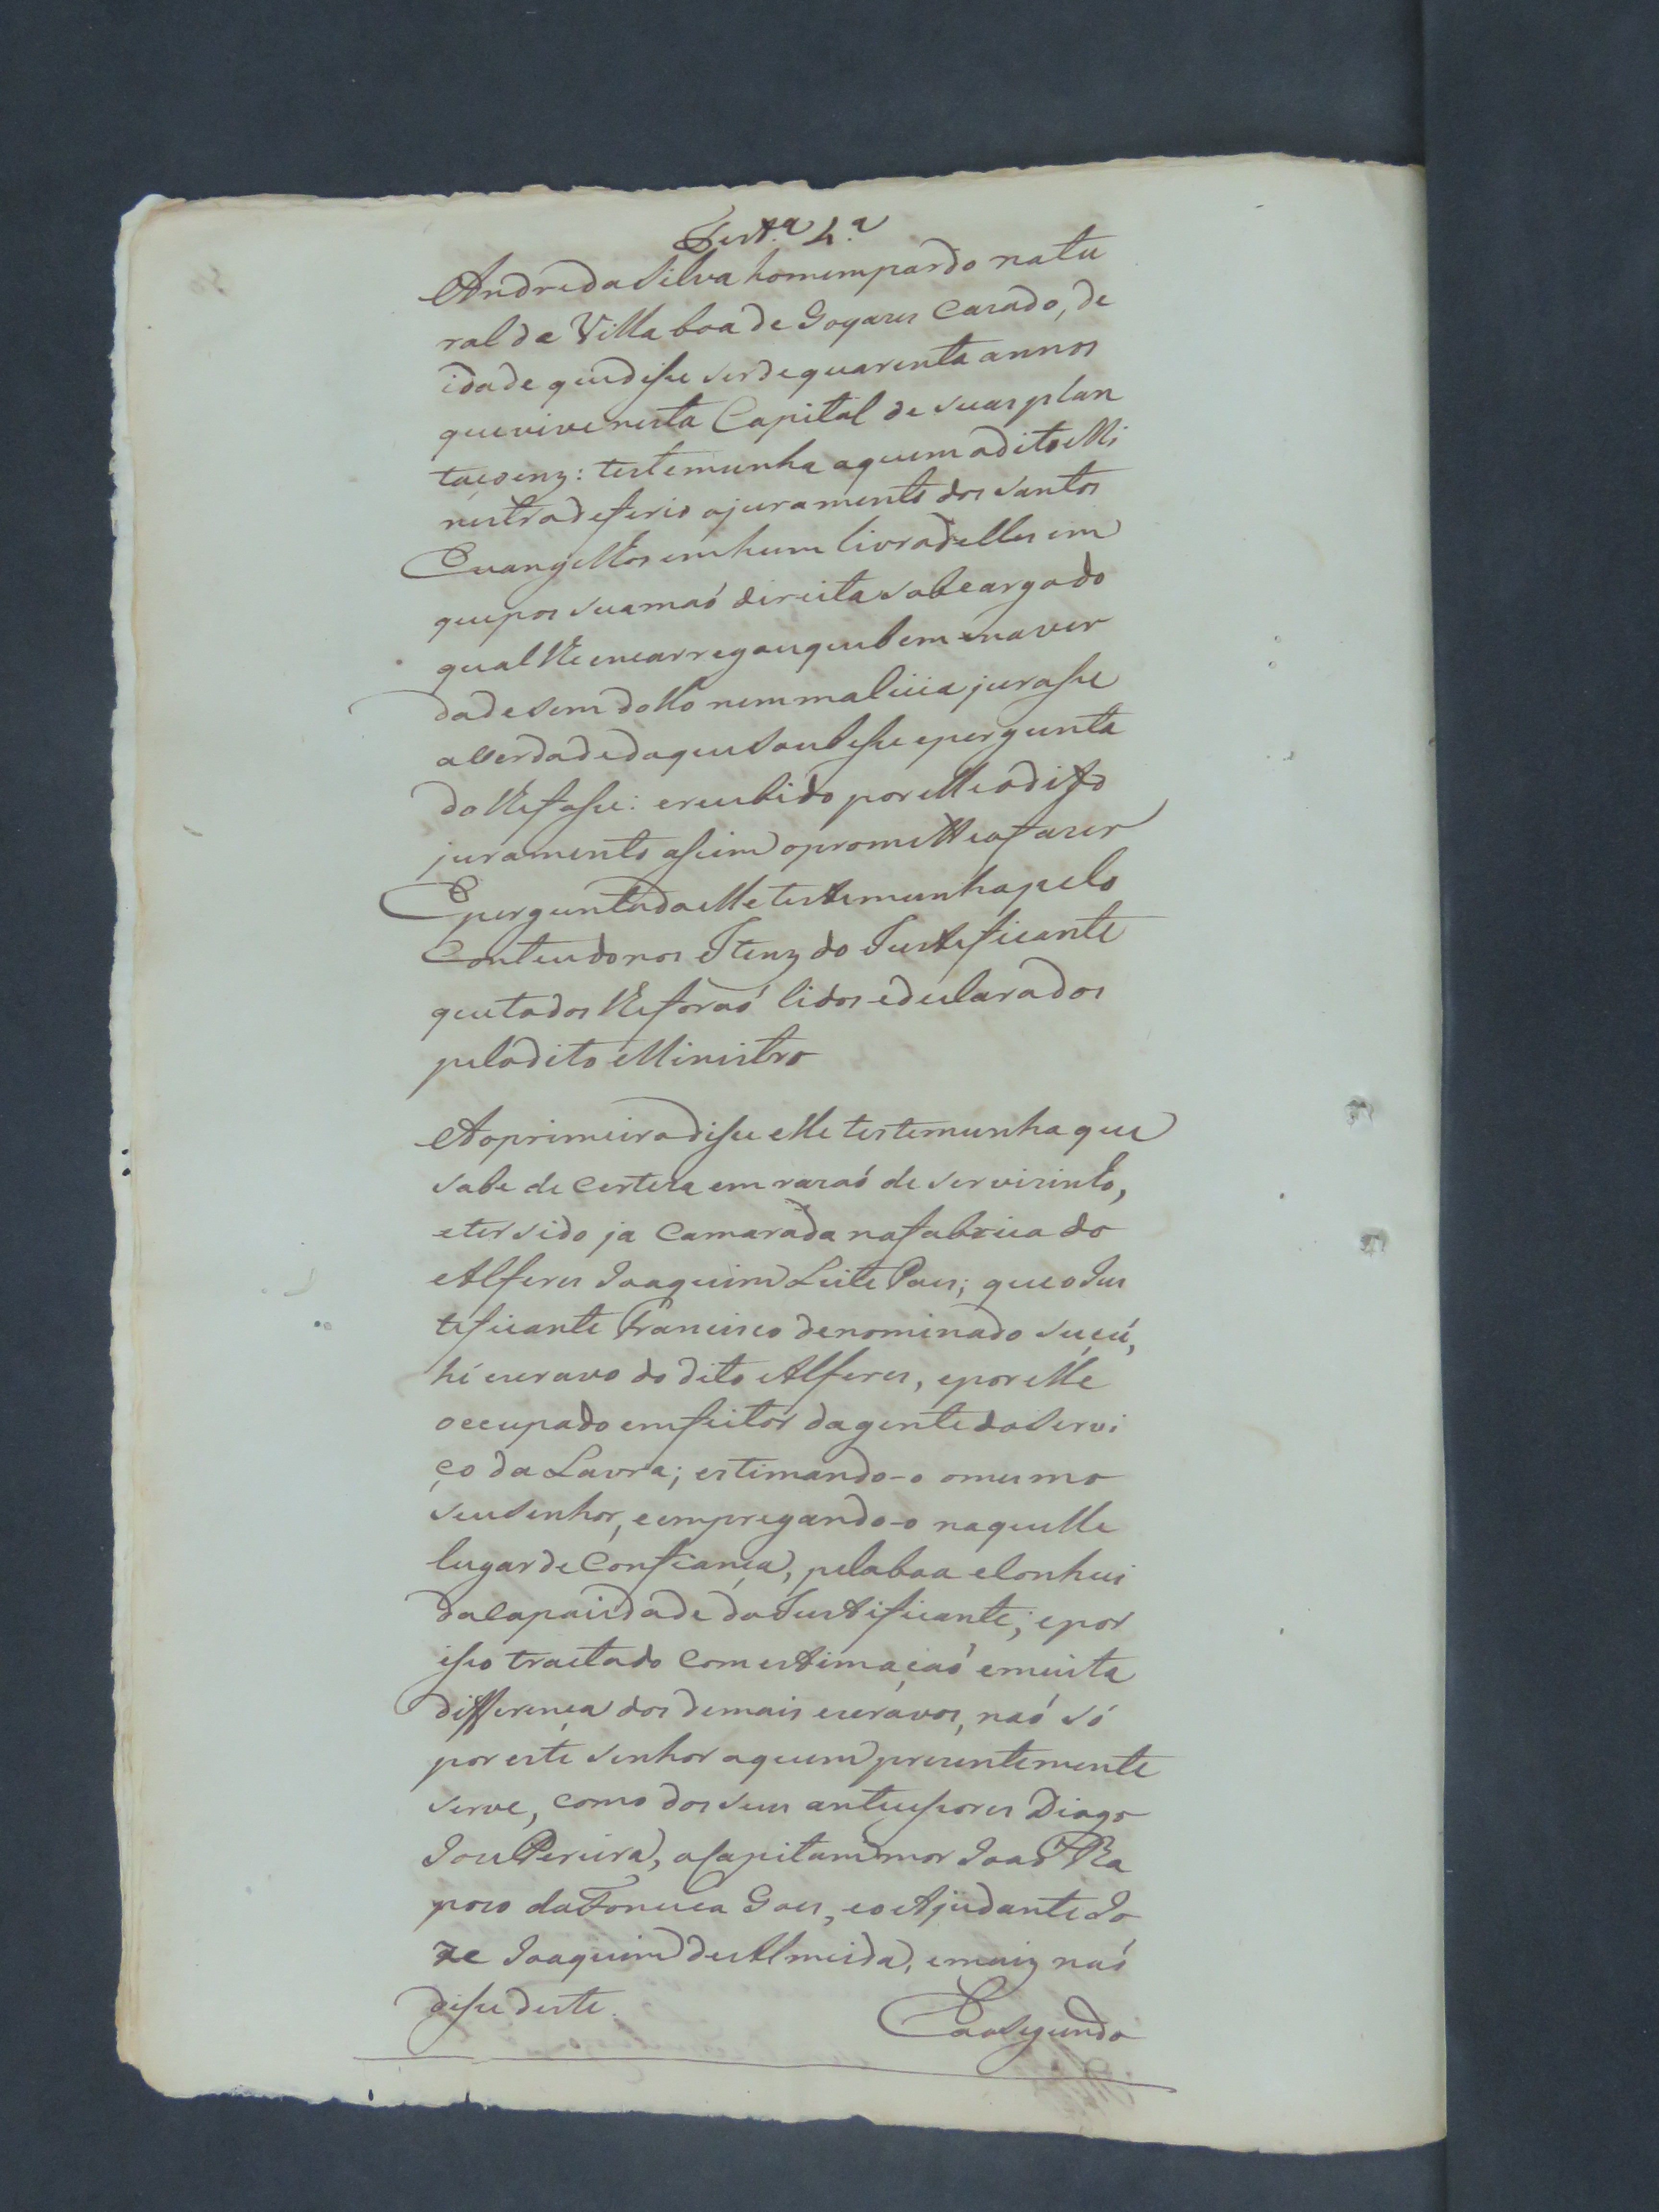 Test.ª 4.ª
Andre da Silva homem pardo natu
ral da Villa boa de Goyazes Cazado, de
idade que disse ser de quarenta annos
que vive nesta Capital de suas plan
taçoenz: testemunha a quem o dito Mi
nistro deferio o juramento dos Santos
Evangelhos em hum livro delles em
que pos sua maó direita sob cargo do
qual lhe encarregou que bem e na ver
dade sem dollo nem malicia jurasse
a verdade do que soubesse e pergunta
do lhe fosse: e recebido por elle o dito
juramento assim o prometteo fazer
E perguntado elle testemunha pelo
Conteudo nos Itenz do Justeficante
que todos lhe foraó lidos e declarados
pelo dito Ministro
Ao primeiro disse elle testemunha que
sabe de certeza em razaó de ser vizinho,
e ter sido ja Camarada na fabrica do
Alferes Joaquim Leite Paes; que o Jus
teficante Francisco denominado Suçú,
hé escravo do dito Alferes, e por elle
occupado em feitor da gente do Servi
ço da Lavra; estimando-o o mesmo
seu Senhor, e empregando-o naquelle
lugar de Confiança, pela boa e Conheci
da Capacidade do Justificante; e por
isso tractado com estimaçaó e muita
differença dos demais escravos, naó só
por este Senhor a quem prezentemente
serve, como dos seus antecessores Diogo
Joze Pereira, o Capitam mor Joaó Ra
pozo da Fonceca Goes, e o Ajudante Jo
ze Joaquim de Almeida, e maiz naó
disse deste.
E ao Segundo